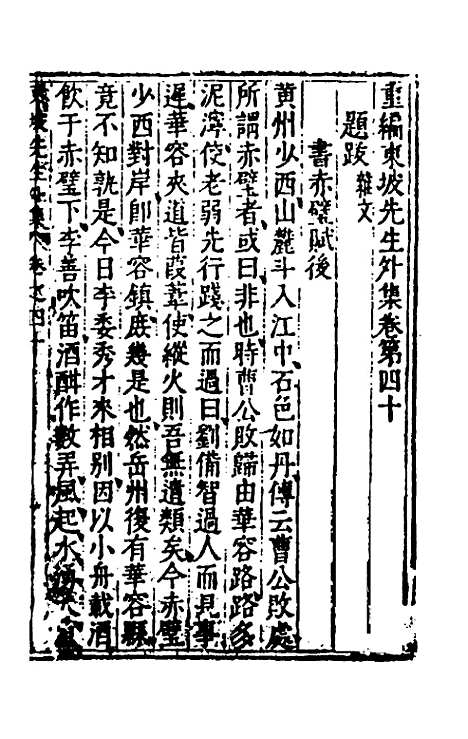 重編東坡先生外集卷第四十
題跋 雜文
書赤壁賦後
黃州少西山麓斗入江中石色如丹傳云曹公敗處
所謂赤壁者或曰非也時曹公敗歸由華容路路多
泥濘使老弱先行踐之而過曰劉備智過人而見事
遲華容夾道皆葭葦使縱火則吾無遺類矣今赤壁
少西對岸即華容鎮庶幾是也然岳州復有華容縣
竟不知孰是今日李委秀才來相別因以小舟載酒
飲于赤壁下李善吹笛酒酣作數弄風起水涌大魚
東坡先生外集卷之四十